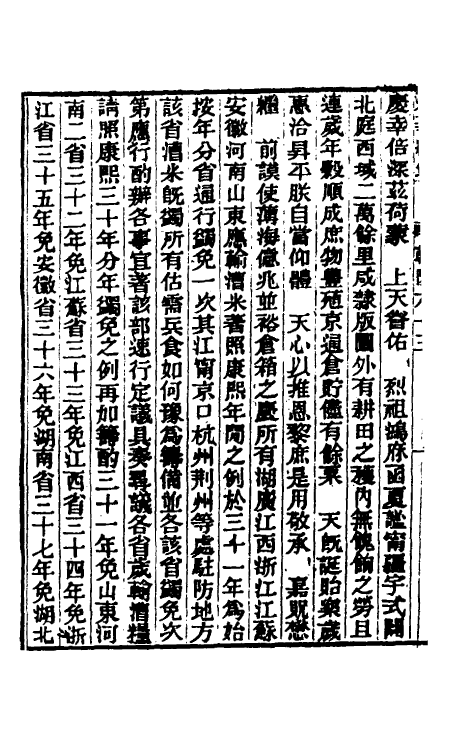 慶幸倍深茲荷蒙　上天眷佑　烈祖鴻庥函夏謐甯疆宇式闢
北庭西域二萬餘里咸隸版圖外有耕田之穫內無餽餉之勞且
連歲年穀順成庶物豐殖京通倉貯儘有餘粟　天既誕貽樂歲
惠洽昇平朕自當仰體　天心以推恩黎庶是用敬承　嘉貺懋
繼　前謨使薄海億兆並裕倉箱之慶所有湖廣江西浙江江蘇
安徽河南山東應輸漕米著照康熙年閒之例於三十一年為始
按年分省通行蠲免一次其江甯京口杭州荆州等處駐防地方
該省漕米既蠲所有估需兵食如何豫為籌備並各該省蠲免次
第應行酌辦各事宜著該部速行定議具奏尋議各省歲輸漕糧
請照康熙三十年分年蠲免之例再加籌酌三十一年免山東河
南二省三十二年免江蘇省三十三年免江西省三十四年免浙
江省三十五年免安徽省三十六年免湖南省三十七年免湖北